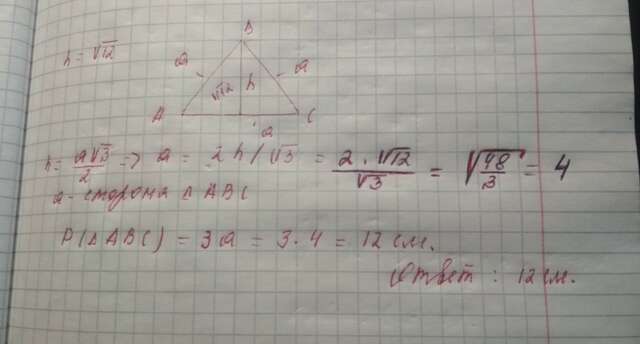 h = √12
B
a
a
√12
h
A
a
C
h = a√3/2 => a = 2h/√3 = 2·√12/√3 = √48/3 = 4
a - сторона △ABC
P(△ABC) = 3a = 3·4 = 12 см.
Ответ: 12 см.